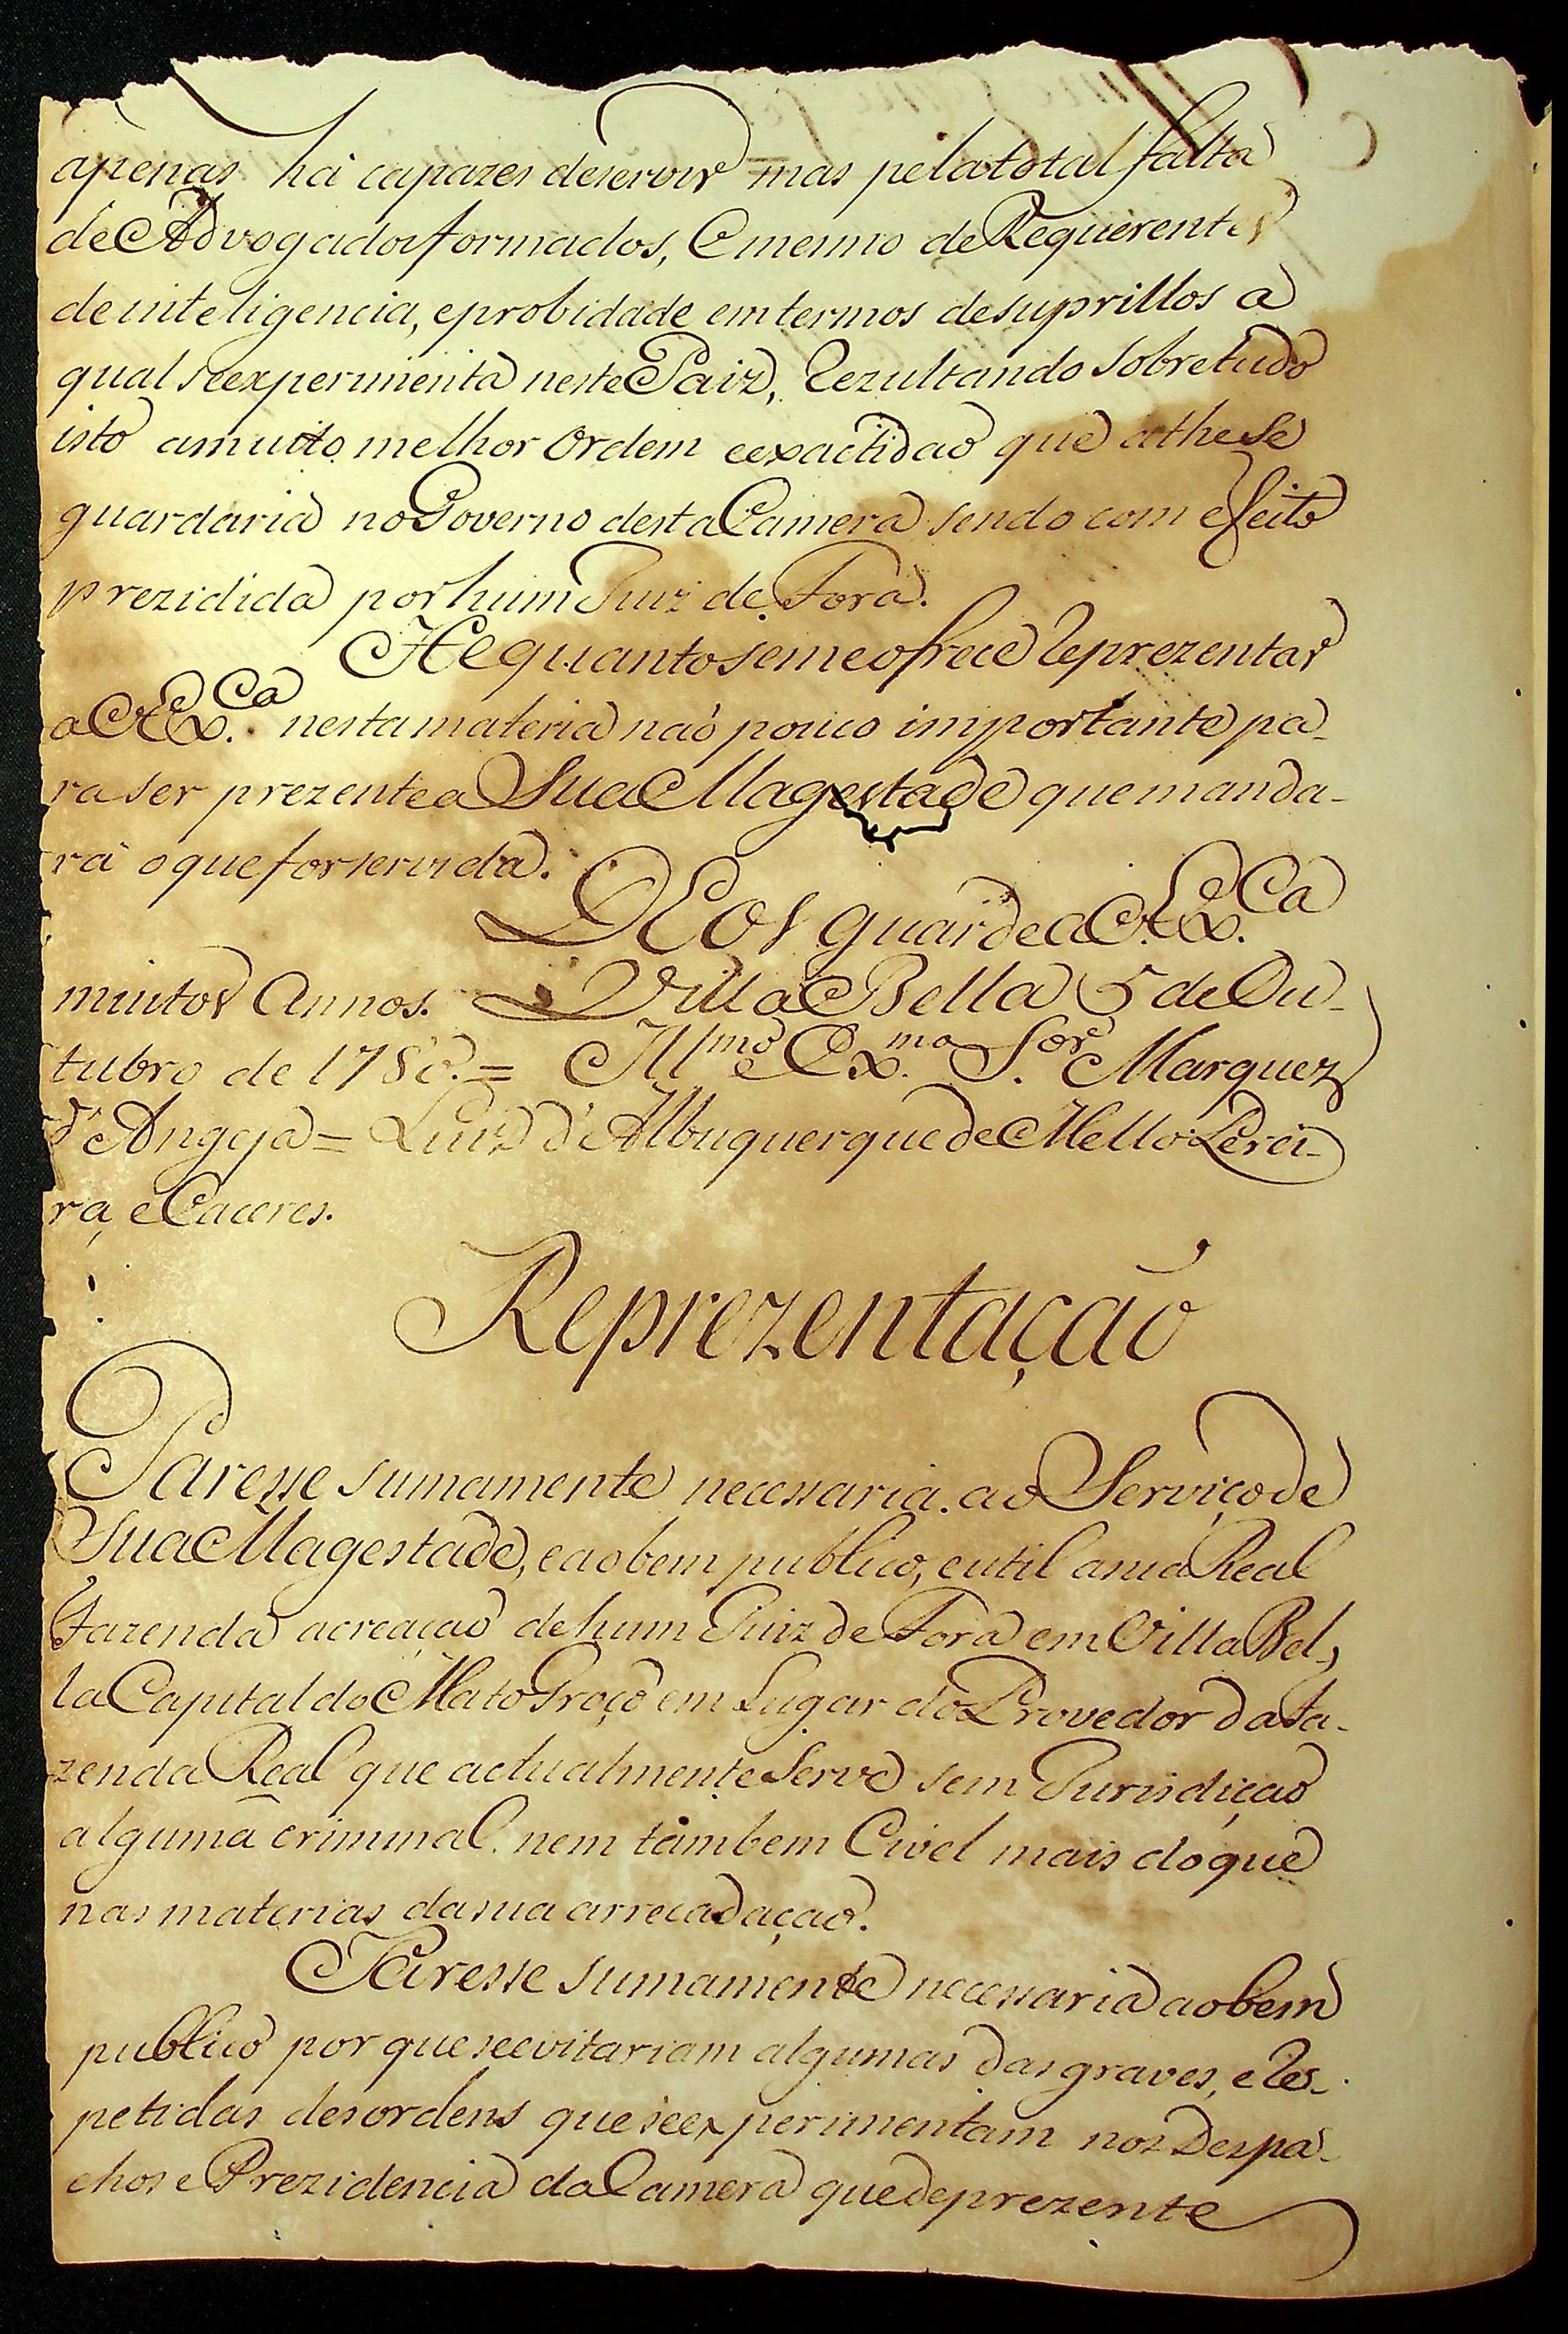 apenas há capazes deservir mas pelatotal falta
de Advogados formados, E mesmo de Requerentes
deinteligencia, eprobidade emtermos desuprillos a
qual seexperimenta neste Paiz, Rezultando sobretudo
isto amuito melhor ordem eexactidaõ que athe se
guardaria no Governo desta Camera sendo com efeito
prezidida por hum Juiz de Fora.
He quanto semeofrece Reprezentar
a V. Ex.ca nestamateria naõ pouco importante pa-
ra ser prezentea Sua Magestade quemanda-
rá oqueforservida.
DEos guardea V. Ex.ca
muitos Annos. Villa Bella 5 de Ou-
tubro de 1780. = Ill.mo e Ex.mo S.or Marquez
d'Angeja = Luiz d'Albuquerque de Mello Perei-
ra, e Caceres.
Reprezentaçaõ
Paresse sumamente necessaria ao Serviço de
Sua Magestade, eaobem publico, eutil asua Real
Fazenda acreaçaõ dehum Juiz de Fora em Villa Bel-
la Capital do Mato Groço em Lugar do Provedor da Fa-
zenda Real que actualmente Serve sem Jurisdiçaõ
alguma criminal, nem tambem Civel mais doque
nas materias dasua arrecadaçaõ.
Paresse sumamente necessaria aobem
publico por que seevitariam algumas das graves, e Res-
petidas desordens que seexperimentam nos Despa-
chos e Prezidencia da Camera quedeprezente